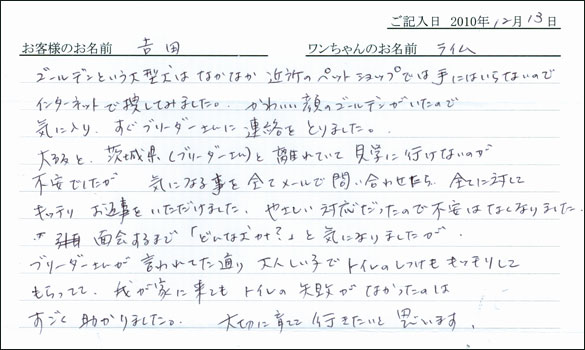 ご記入日 2010年12月13日
お客様のお名前 吉田 ワンちゃんのお名前 ライム
ゴールデンという大型犬はなかなか近所のペットショップでは手にはいらないので
インターネットで捜してみました。かわいい顔のゴールデンがいたので
気に入り、すぐブリーダーさんに連絡をとりました。
大阪と、茨城県(ブリーダーさん)と離れていて見学に行けないのが
不安でしたが 気になる事を全てメールで問い合わせたら、全てに対して
キッチリお返事をいただけました。やさしい対応だったので不安はなくなりました。
面会するまで「どんな犬かな?」と気になりましたが、
ブリーダーさんが言われてた通り大人しい子でトイレのしつけもキッチリして
もらってて、我が家に来てもトイレの失敗がなかったのは
すごく助かりました。大切に育てて行きたいと思います。